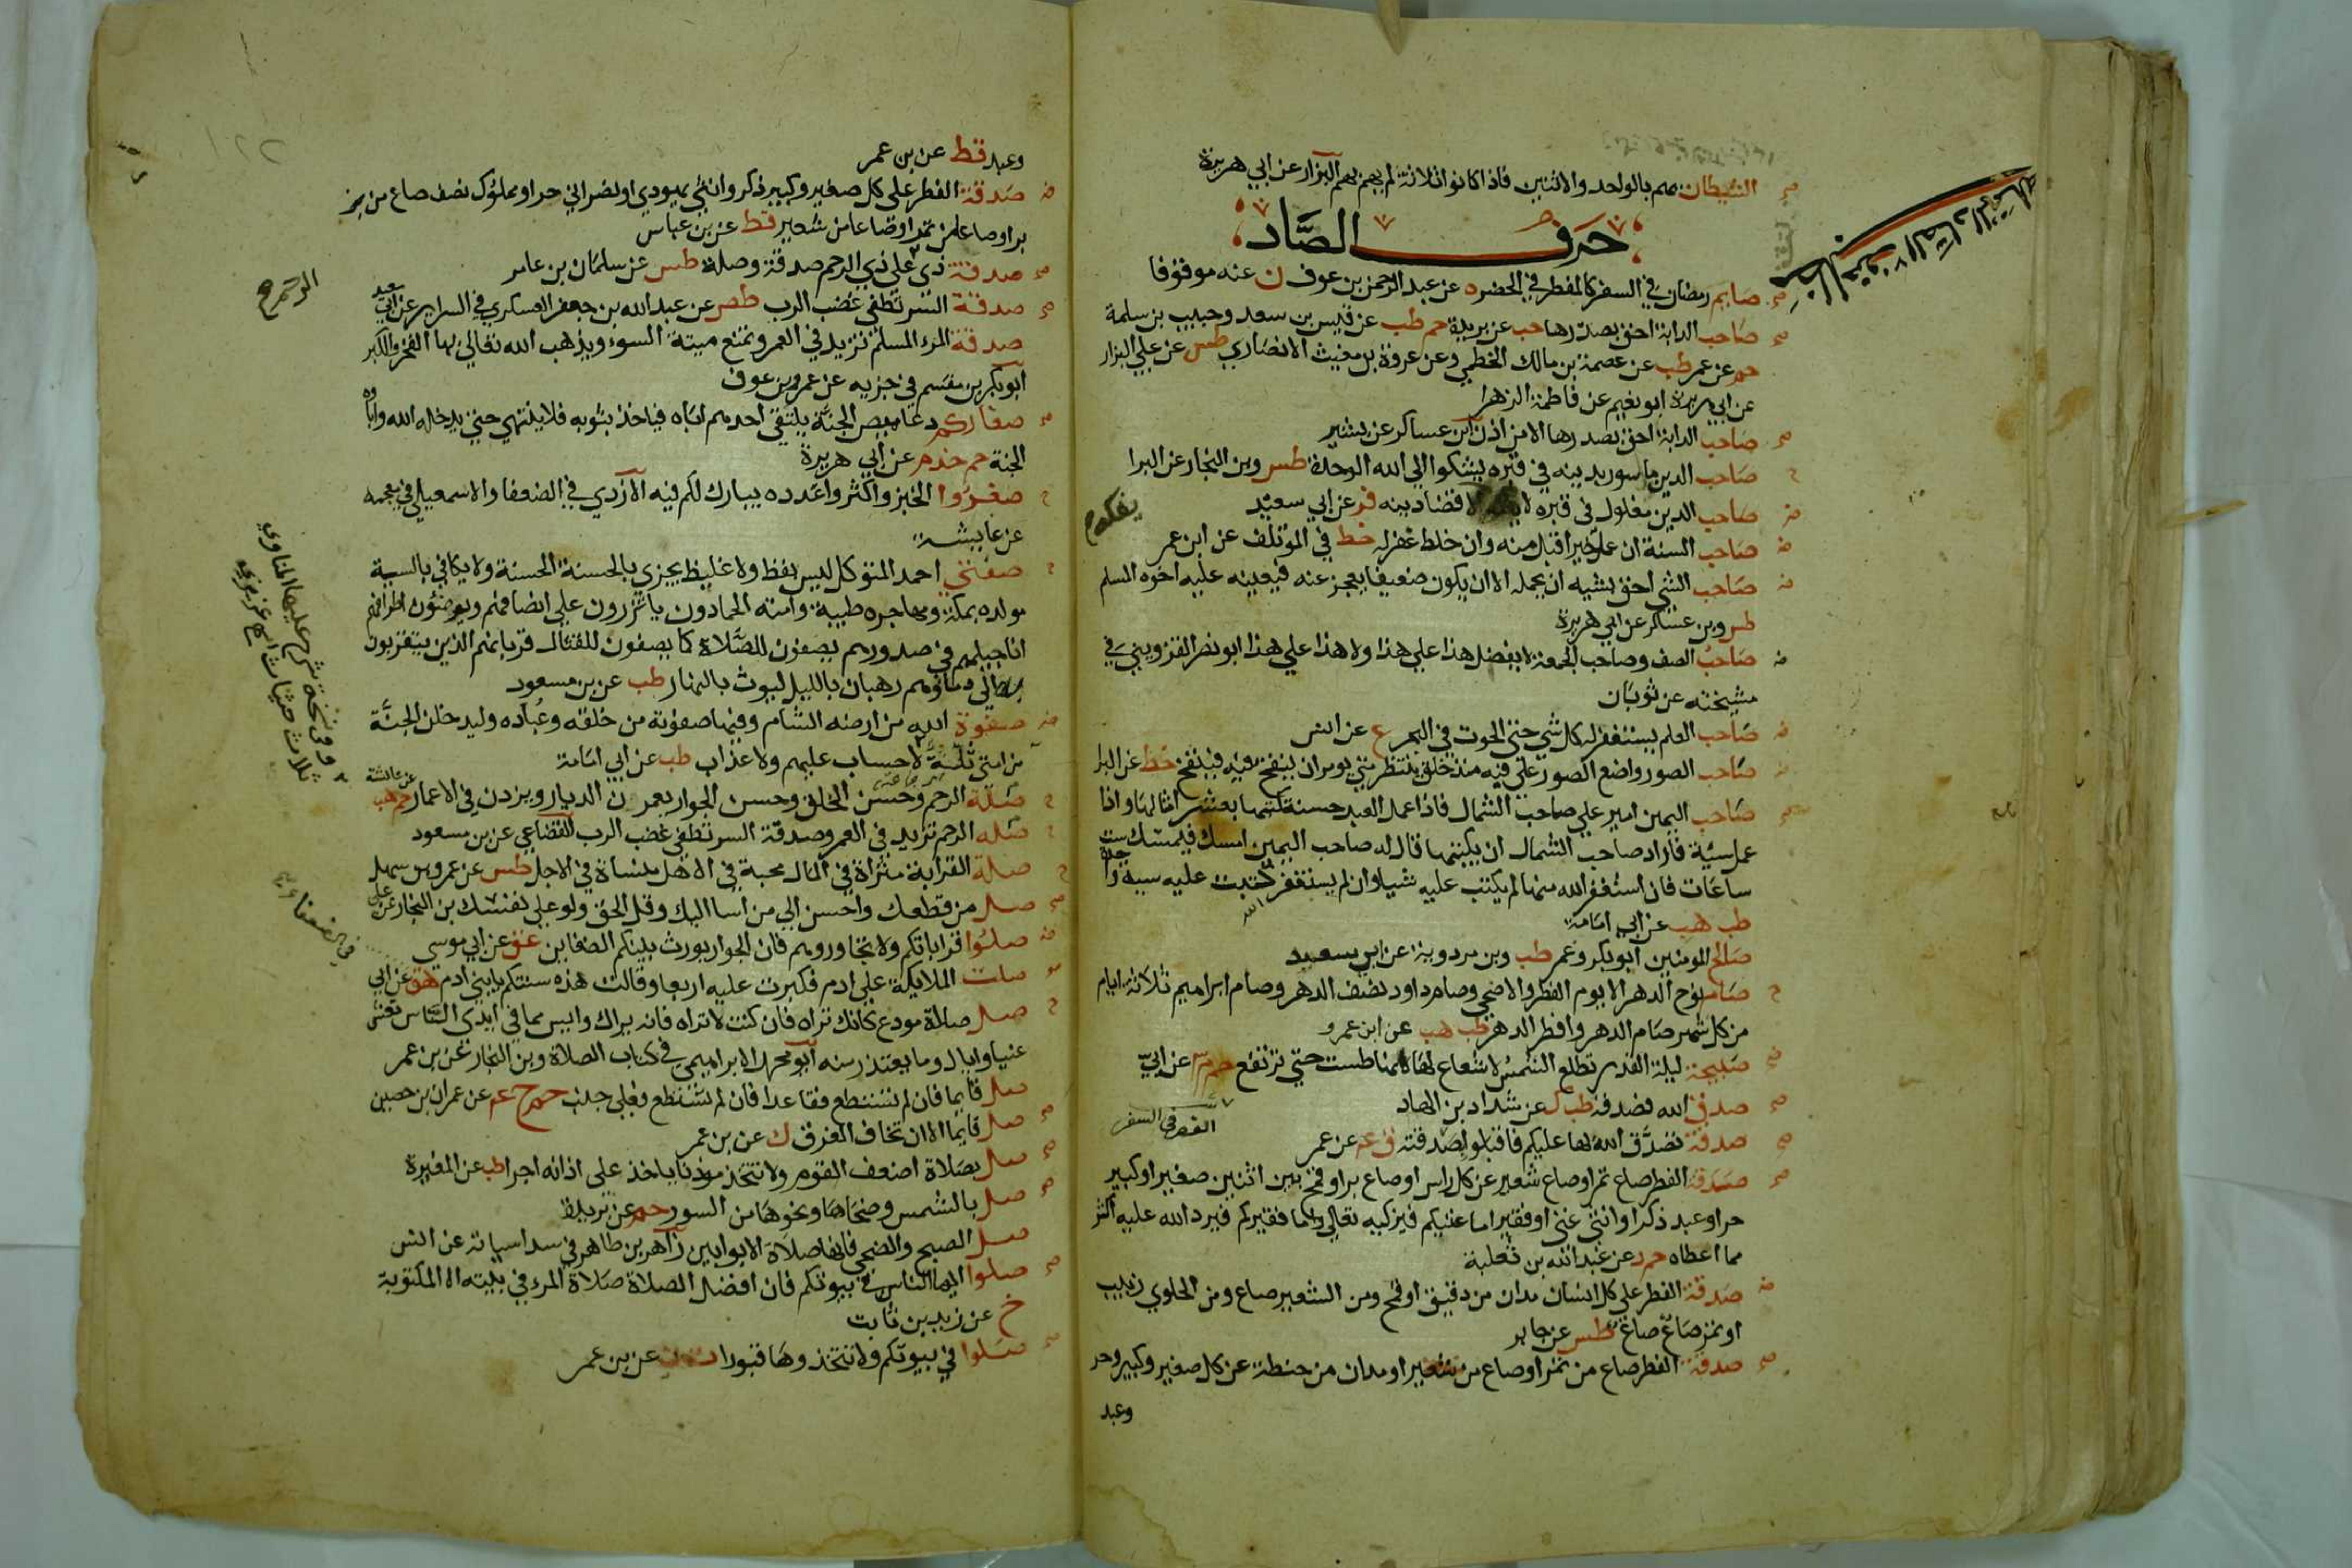 الشيطان يهم بالواحد والاثنين فاذا كانوا ثلاثة لم يهم بهم البزار عن ابي هريرة
حرف الصاد
صايم رمضان في السفر كالمفطر في الحضر ه عن عبد الرحمن بن عوف ن عنه موقوفا
صاحب الدابة احق بصدرها حب عن بريدة حم طب عن قيس بن سعد وحبيب بن سلمة
حم عن عمر طب عن عصمة بن مالك الخطمي وعن عروة بن مغيث الانصاري طس عن علي البزار
عن ابي هريرة ابو نعيم عن فاطمة الزهرا
صاحب الدابة احق بصدرها الا من اذن ابن عساكر عن بشير
صاحب الدين ماسور بدينه في قبره يشكوا الي الله الوحدة طس وبن النجار عن البرا
صاحب الدين مغلول في قبره لا الا قضا دينه فر عن ابي سعيد
يفكه
صاحب السنة ان عمل خيرا قبل منه وان خلط غفر له خط في الموتلف عن ابن عمر
صاحب الشي احق بشيه ان يحمله الا ان يكون ضعيفا يعجز عنه فيعينه عليه اخوه المسلم
طس وبن عساكر عن ابي هريرة
صاحب الصف وصاحب الجمعة لا يفضل هذا علي هذا ولا هذا علي هذا ابو نصر القزويني في
مشيخته عن ثوبان
صاحب العلم يستغفر له كل شي حتي الحوت في البحر ع عن انس
صاحب الصور واضع الصور علي فيه منذ خلق ينتظر متي يومر ان ينفخ فيه فينفخ خط عن البرا
صاحب اليمين امير علي صاحب الشمال فاذا عمل العبد حسنة كتبها بعشر امثالها واذا
عمل سيئة فاراد صاحب الشمال ان يكتبها قال له صاحب اليمين امسك فيمسك ست
ساعات فان استغفر الله منها لم يكتب عليه شيا وان لم يستغفر الله كتبت عليه سية واحدة
طب هب عن ابي امامة
صالح المومنين ابو بكر وعمر طب وبن مردوية عن ابن مسعود
صام نوح الدهر الا يوم الفطر والاضحي وصام داود نصف الدهر وصام ابراهيم ثلاثة ايام
من كل شهر صام الدهر وافطر الدهر طب هب عن ابن عمرو
صبيحة ليلة القدر تطلع الشمس لا شعاع لها كانها طست حتي ترتفع حم م عن ابي
صدق الله فصدقه طب ك عن شداد بن الهاد
القصر في السفر
صدقة تصدق الله بها عليكم فاقبلوا صدقته ق عه عن عمر
صدقة الفطر صاع تمر او صاع شعير عن كل راس او صاع بر او قمح بين اثنين صغير او كبير
حر او عبد ذكر او انثي غني او فقير اما غنيكم فيزكيه الله تعالي واما فقيركم فيرد الله عليه اكثر
مما اعطاه حم د عن عبد الله بن ثعلبة
صدقة الفطر علي كل انسان مدان من دقيق او قمح ومن الشعير صاع ومن الحلوي زبيب
او تمر صاع صاع طس عن جابر
صدقة الفطر صاع من تمر او صاع من شعير او مدان من حنطة عن كل صغير وكبير وحر
وعبد
وعبد قط عن بن عمر
صدقة الفطر علي كل صغير وكبير ذكر وانثي يهودي او نصراني حر او مملوك نصف صاع من
بر او صاعا من تمر او صاعا من شعير قط عن بن عباس
صدقة ذي الرحم علي ذي الرحم صدقة وصلة طس عن سلمان بن عامر
صدقة السر تطفي غضب الرب طص عن عبد الله بن جعفر العسكري في السراير عن ابي سعيد
صدقة المرء المسلم تزيد في العمر وتمنع ميتة السوء ويذهب الله تعالي بها الفخر والكبر
ابو بكر بن مقسم في جزيه عن عمرو بن عوف
صغاركم دعاميص الجنة يلتقي احدهم اباه فياخذ بثوبه فلا ينتهي حتي يدخله الله واباه
الجنة حم خد م عن ابي هريرة
صغروا الخبز واكثروا عدده يبارك لكم فيه الازدي في الضعفا والاسمعيلي في معجمه
عن عايشة
صفتي احمد المتوكل ليس بفظ ولا غليظ يجزي بالحسنة الحسنة ولا يكافي بالسية
مولده بمكة ومهاجره طيبة وامته الحمادون ياتزرون علي انصافهم ويوضئون اطرافهم
اناجيلهم في صدورهم يصفون للصلاة كما يصفون للقتال قربانهم الذين يتقربون
به الي دماوهم رهبان بالليل ليوث بالنهار طب عن بن مسعود
صفوة الله من ارضه الشام وفيها صفوته من خلقه وعباده وليدخلن الجنة
من امتي ثلة لا حساب عليهم ولا عذاب طب عن ابي امامة
صلة الرحم وحسن الخلق وحسن الجوار يعمرن الديار ويزدن في الاعمار حم هب عن عائشة
صلة الرحم تزيد في العمر وصدقة السر تطفي غضب الرب القضاعي عن بن مسعود
صلة القرابة مثراة في المال محبة في الاهل منساة في الاجل طس عن عمرو بن سهل
صل من قطعك واحسن الي من اسا اليك وقل الحق ولو علي نفسك بن النجار عن علي
صلوا قراباتكم ولا تجاوروهم فان الجوار يورث بينكم الضغاين عق عن ابي موسي
صلت الملايكة علي ادم فكبرت عليه اربعا وقالت هذه سنتكم يا بني ادم هق عن ابي
صل صلاة مودع كانك تراه فان كنت لا تراه فانه يراك وايس مما في ايدي الناس تعش
غنيا واياك وما يعتذر منه ابو محمد الابراهيمي في كتاب الصلاة وبن النجار عن بن عمر
صل قايما فان لم تستطع فقاعدا فان لم تستطع فعلي جنب حم خ عه عن عمران بن حصين
صل قايما الا ان تخاف الغرق ك عن بن عمر
صل بصلاة اضعف القوم ولا تتخذ موذنا ياخذ علي اذانه اجرا طب عن المغيرة
صل بالشمس وضحاها ونحوها من السور حم عن بريدة
صل الصبح والضحي فانها صلاة الاوابين زاهر بن طاهر في سداسياته عن انس
صلوا ايها الناس في بيوتكم فان افضل الصلاة صلاة المرء في بيته الا المكتوبة
خ عن زيد بن ثابت
صلوا في بيوتكم ولا تتخذوها قبورا عن بن عمر